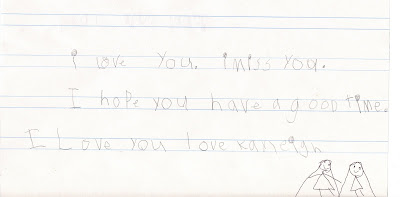 i love you. i miss you.
I hope you have a good time.
I Love you love Karleigh